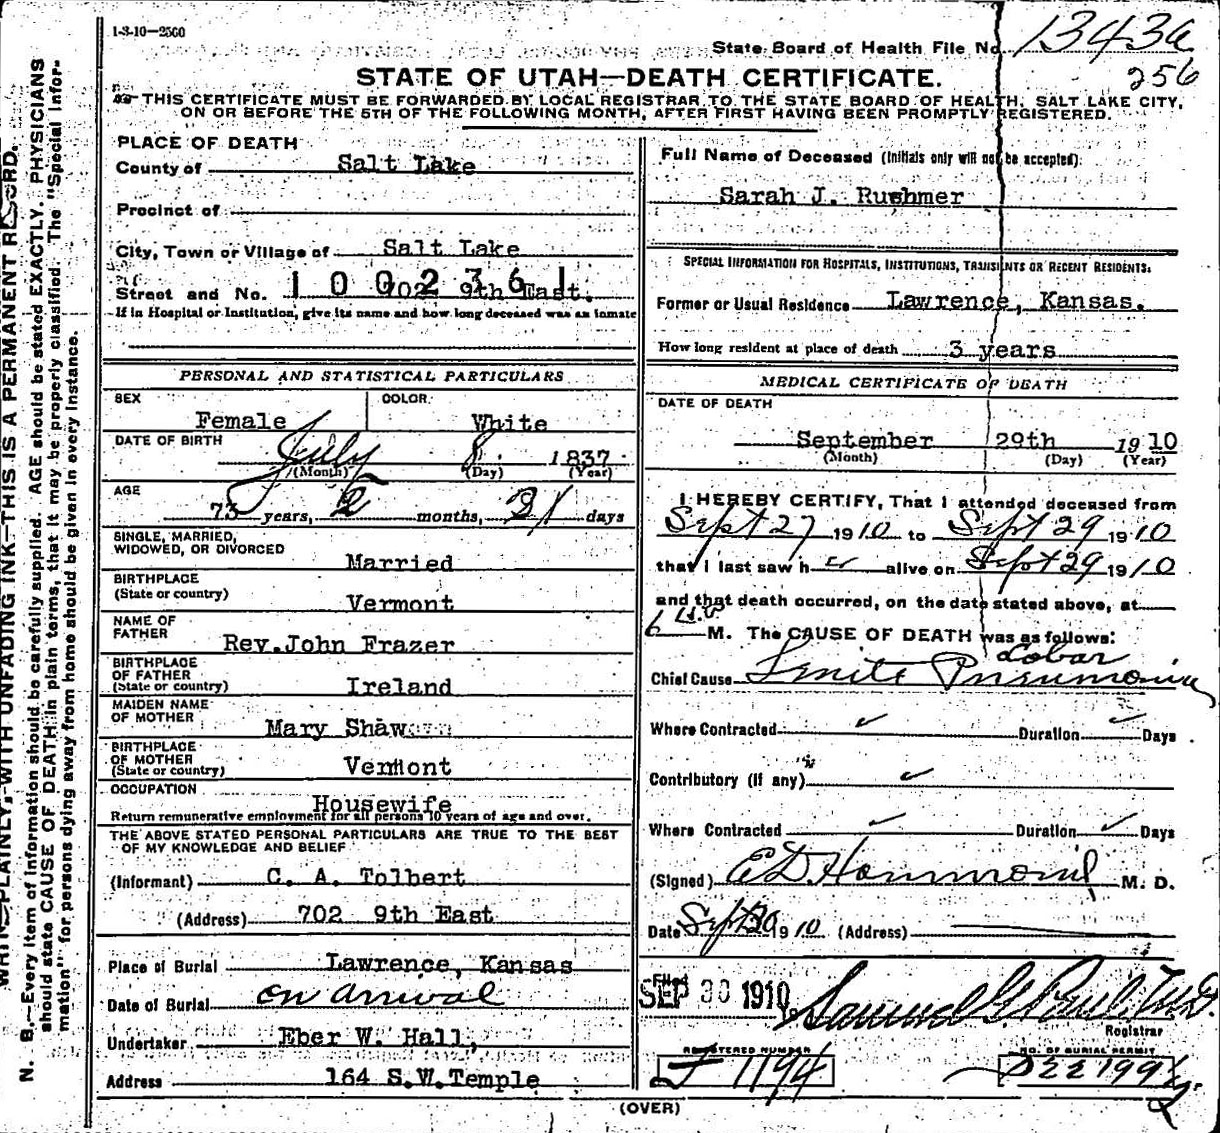 1-3-10-2500
State Board of Health File No. 13436
256
STATE OF UTAH—DEATH CERTIFICATE.
THIS CERTIFICATE MUST BE FORWARDED BY LOCAL REGISTRAR TO THE STATE BOARD OF HEALTH, SALT LAKE CITY,
ON OR BEFORE THE 5TH OF THE FOLLOWING MONTH, AFTER FIRST HAVING BEEN PROMPTLY REGISTERED.
PLACE OF DEATH
County of Salt Lake
Precinct of
City, Town or Village of Salt Lake
1002361
Street and No. 702 9th East.
If in Hospital or Institution, give its name and how long deceased was an inmate
PERSONAL AND STATISTICAL PARTICULARS
SEX Female
COLOR White
DATE OF BIRTH July 8 1837
(Month) (Day) (Year)
AGE 73 years, 2 months, 21 days
SINGLE, MARRIED,
WIDOWED, OR DIVORCED Married
BIRTHPLACE
(State or country) Vermont
NAME OF
FATHER Rev.John Frazer
BIRTHPLACE
OF FATHER
(State or country) Ireland
MAIDEN NAME
OF MOTHER Mary Shaw
BIRTHPLACE
OF MOTHER
(State or country) Vermont
OCCUPATION Housewife
Return remunerative employment for all persons 10 years of age and over.
THE ABOVE STATED PERSONAL PARTICULARS ARE TRUE TO THE BEST
OF MY KNOWLEDGE AND BELIEF
(Informant) C. A. Tolbert
(Address) 702 9th East
Place of Burial Lawrence, Kansas
Date of Burial on arrival
Undertaker Eber W. Hall,
Address 164 S.W.Temple
Full Name of Deceased (Initials only will not be accepted):
Sarah J. Rushmer
SPECIAL INFORMATION FOR HOSPITALS, INSTITUTIONS, TRANSIENTS OR RECENT RESIDENTS.
Former or Usual Residence Lawrence, Kansas.
How long resident at place of death 3 years
MEDICAL CERTIFICATE OF DEATH
DATE OF DEATH
September 29th 1910
(Month) (Day) (Year)
I HEREBY CERTIFY, That I attended deceased from
Sept 27 1910 to Sept 29 1910
that I last saw h er alive on Sept 29 1910
and that death occurred, on the date stated above, at
6 M. The CAUSE OF DEATH was as follows:
Lobar
Chief Cause Senile Pneumonia
Where Contracted Duration Days
Contributory (if any)
Where Contracted Duration Days
(Signed) E D. Hammond M. D.
Date Sept 29 1910 (Address)
Filed
SEP 30 1910 Samuel G. Paul. M.D.
Registrar
REGISTERED NUMBER
1194
NO. OF BURIAL PERMIT
(OVER)
WRITE PLAINLY, WITH UNFADING INK—THIS IS A PERMANENT RECORD.
N. B.—Every item of information should be carefully supplied. AGE should be stated EXACTLY. PHYSICIANS
should state CAUSE OF DEATH in plain terms, that it may be properly classified. The "Special Infor-
mation" for persons dying away from home should be given in every instance.